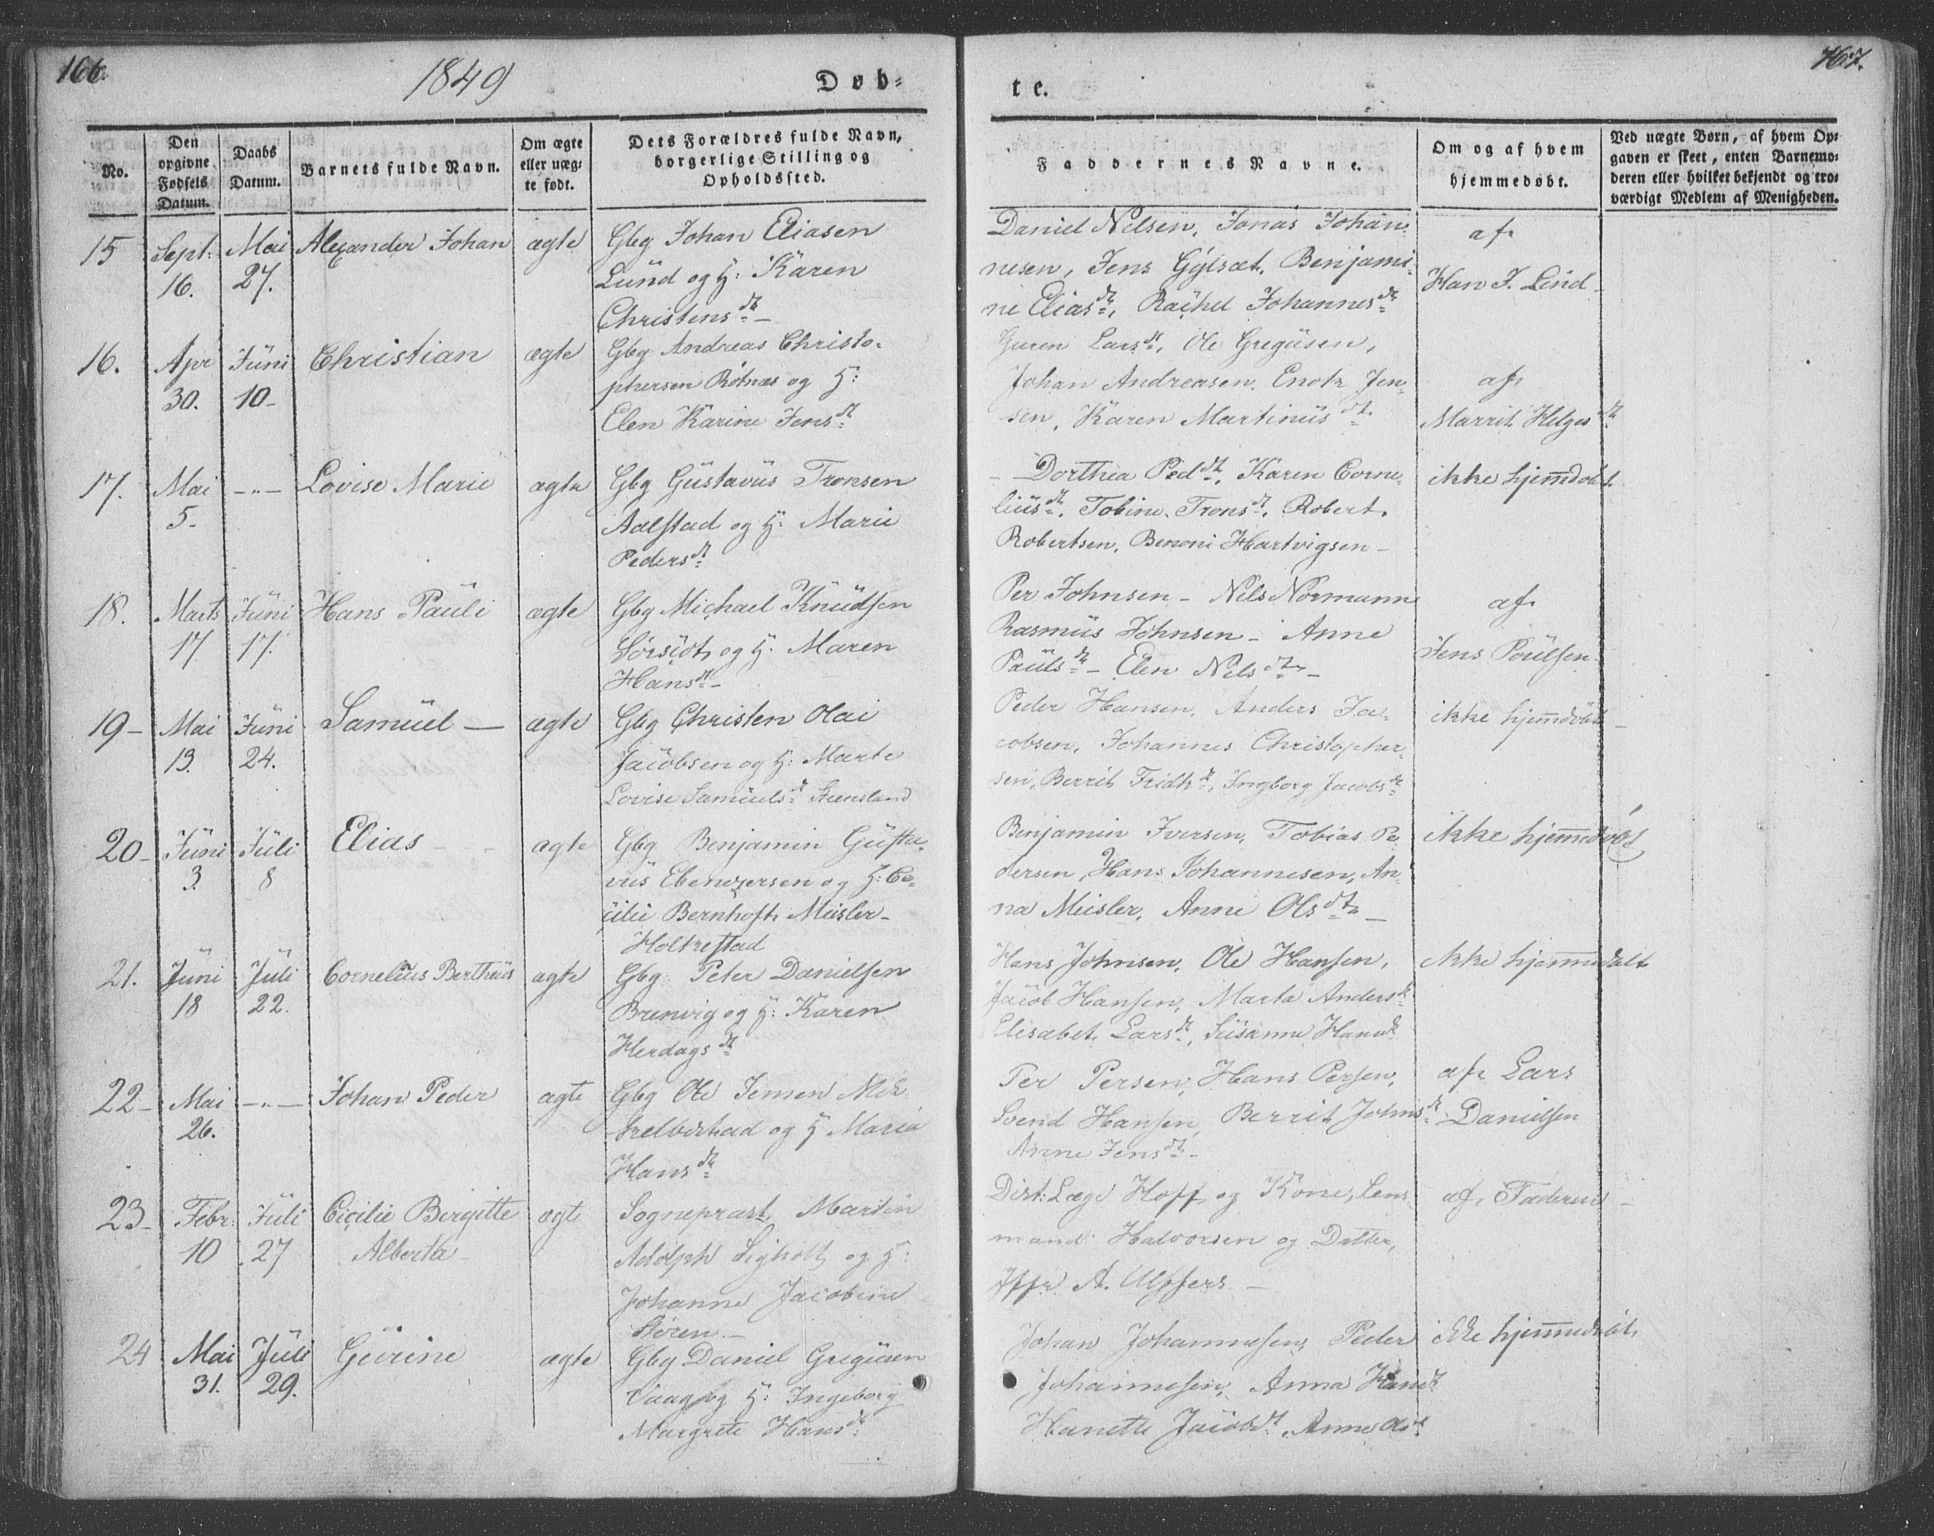 166.
1849
Døb=
te.
167.
No.
Den opgivne Fødsels Datum.
Daabs Datum.
Barnets fulde Navn.
Om ægte eller uæg= te født.
Dets Forældres fulde Navn, borgerlige Stilling og Opholdssted.
Faddernes Navne.
Om og af hvem hjemmedøbt.
Ved uægte Børn, af hvem Op= gaven er skeet, enten Barnemo= deren eller hvilket bekjendt og tro= værdigt Medlem af Menigheden.
15
Sept: 16.
Mai 27.
Alexander Johan
ægte
Gbg Johan Eliasen
Lund og H: Karen
Christensdt
Daniel Nilsen, Jonas Johan=
nesen, Jens Gylset, Benjami=
ne Eliasdt, Rachel Johannesdt
af
Han J. Lind
16.
Apr 30.
Juni 10
Christian
ægte
Gbg Andreas Christo=
phersen Rotnæs og H:
Elen Karine Jensdt
Guren Larsdt, Ole Gregusen,
Johan Andreasen, Enok Jen=
sen, Karen Martinusdt
af
Marrit Helgesdt
17.
Mai 5.
-"-
Lovise Marie
ægte
Gbg Gustavus Tronsen
Aalstad og H: Marie
Pedersdt
Dorthea Peddt, Karen Corne=
liusdt, Tobine Tronsdt, Robert
Robertsen, Benoni Hartvigsen
ikke hjemdøbt
18.
Marts 17
Juni 17.
Hans Pauli
ægte
Gbg Michael Knudsen
og H: Maren
Hansdt
Per Johnsen - Nils Normann
Rasmus Johnsen - Anne
Paulsdt - Elen Nilsdt
af
Jens Poulsen
19
Mai 13.
Juni 24.
Samuel
ægte
Gbg Christen Olai
Jacobsen og H: Marte
Lovise Samuelsdt Steensland
Peder Hansen, Anders Ja=
cobsen, Johannes Christopher=
sen, Berrit Fridrdt, Ingborg Jacobsdt
ikke hjemdøbt
20
Juni 3.
Juli 8
Elias
ægte
Gbg Benjamin Gusta=
vus Ebenezersen og H: Ce=
cilie Bernhoft Meisler
Holkestad
Benjamin Iversen, Tobias Pe=
dersen, Hans Johannesen, An=
na Meisler, Anne Olsdt
ikke hjemmedøbt
21.
Juni 18
Juli 22.
Cornelius Bertheus
ægte
Gbg: Peter Danielsen
Brenvig og H: Karen
Herdagsdt
Hans Johnsen, Ole Hansen,
Jacob Hansen, Marta Andersdt
Elisabet Larsdt, Susanne Hansdt
ikke hjemmedøbt
22
Mai 26.
-"-
Johan Peder
ægte
Gbg Ole Jensen
og H Maria
Hansdt
Per Persen, Hans Persen,
Svend Hansen, Berrit Johnsdt
Anne Jensdt
af Lars
Danielsen
23
Febr: 10
Juli 27
Cicilie Birgitte
Alberta
ægte
Sognepræst Martin
Adolph Ligholt og H:
Johanne Jacobine
Støren
Dist: Læge Hoff og Kone, Lens
mand Halvorsen og Datter,
Jfr A. Ulffers
af Faderen
24
Mai 31.
Juli 29.
Gurine
ægte
Gbg Daniel Gregusen
Vaag og H: Ingeborg
Margrete Hansdt
Johan Johannesen, Peder
Johannesen, Anna Hansdt
Hanette Jacobdt, Anne Olsdt
ikke hjemmedøbt